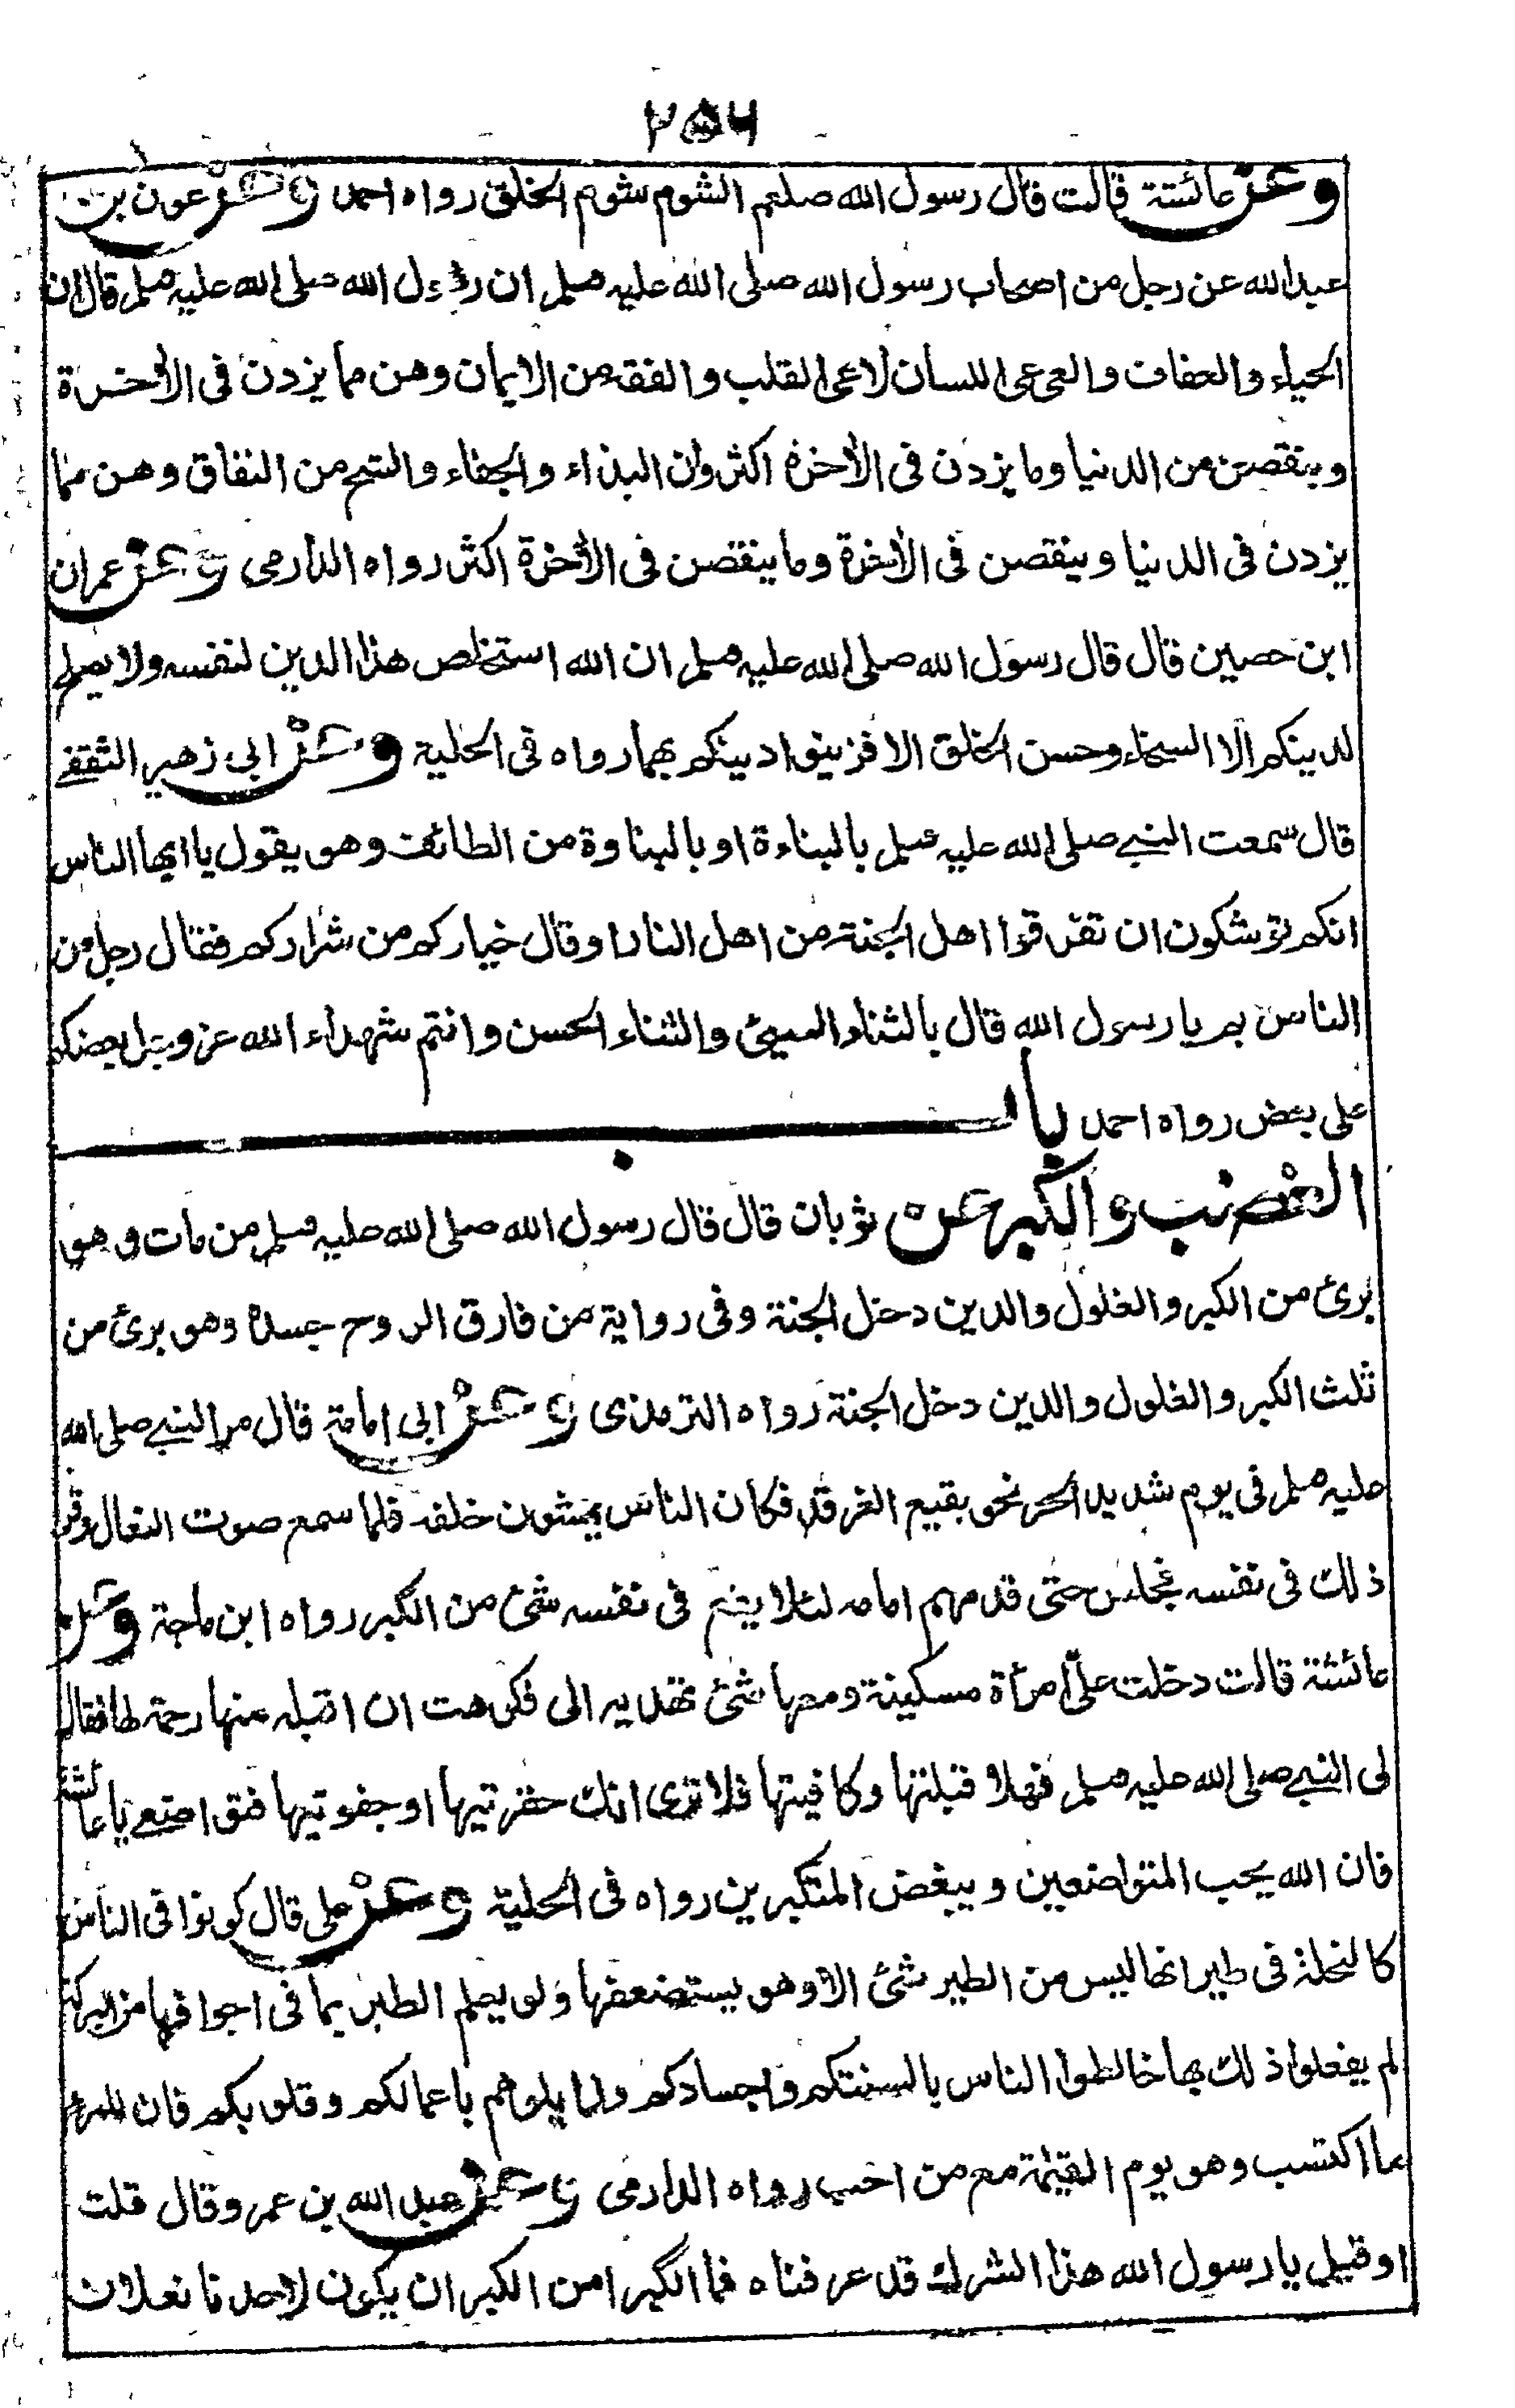 ٢٥٦
وعن عائشة قالت قال رسول الله صلعم الشوم شوم الخلق رواه احمد وعن عون بن
عبدالله عن رجل من اصحاب رسول الله صلى الله عليه وسلم ان رسول الله صلى الله عليه وسلم قال ان
الحياء والعفاف والعى عى اللسان لا عى القلب والفقه من الايمان وهن مما يزدن فى الأخرة
وينقصن من الدنيا وما يزدن فى الأخرة اكثر وان البذاء والجفاء والشح من النفاق وهن مما
يزدن فى الدنيا وينقصن فى الأخرة وما ينقصن فى الأخرة اكثر رواه الدارمى وعن عمران
ابن حصين قال قال رسول الله صلى الله عليه وسلم ان الله استخلص هذا الدين لنفسه ولا يصلح
لدينكم الا السخاء وحسن الخلق الا فزينوا دينكم بهما رواه فى الحلية وعن ابى زهير الثقفى
قال سمعت النبى صلى الله عليه وسلم بالبناءة او بالبناوة من الطائف وهو يقول يا ايها الناس
انكم توشكون ان تفرقوا اهل الجنة من اهل النار او قال خياركم من شراركم فقال رجل من
الناس بم يا رسول الله قال بالثناء السيئ والثناء الحسن وانتم شهداء الله عز وجل بعضكم
على بعض رواه احمد باب
الغضب والكبر عن ثوبان قال قال رسول الله صلى الله عليه وسلم من مات وهو
برئ من الكبر والغلول والدين دخل الجنة وفى رواية من فارق الروح جسده وهو برئ من
ثلث الكبر والغلول والدين دخل الجنة رواه الترمذى وعن ابى امامة قال مر النبى صلى الله
عليه وسلم فى يوم شديد الحر نحو بقيع الغرقد فكان الناس يمشون خلفه فلما سمع صوت النعال وقر
ذلك فى نفسه فجلس حتى قدمهم امامه لئلا يقع فى نفسه شئ من الكبر رواه ابن ماجة وعن
عائشة قالت دخلت علىّ امرأة مسكينة ومعها شئ تهديه الى فكرهت ان اقبله منها رحمة لها فقال
لى النبى صلى الله عليه وسلم فهلا قبلتها وكافيتها فلا ترى انك حقرتيها او جفوتيها فتواضعى يا عائشة
فان الله يحب المتواضعين ويبغض المتكبرين رواه فى الحلية وعن على قال كونوا فى الناس
كالنحلة فى طيرانها ليس من الطير شئ الا وهو يستضعفها ولو يعلم الطير بما فى اجوافها من البركة
لم يفعلوا ذلك بها خالطوا الناس بالسنتكم واجسادكم وزايلوهم باعمالكم وقلوبكم فان للمرء
ما اكتسب وهو يوم القيمة مع من احب رواه الدارمى وعن عبد الله بن عمرو قال قلت
او قيل يا رسول الله هذا الشرك قد عرفناه فما الكبر امن الكبر ان يكون لاحدنا نعلان